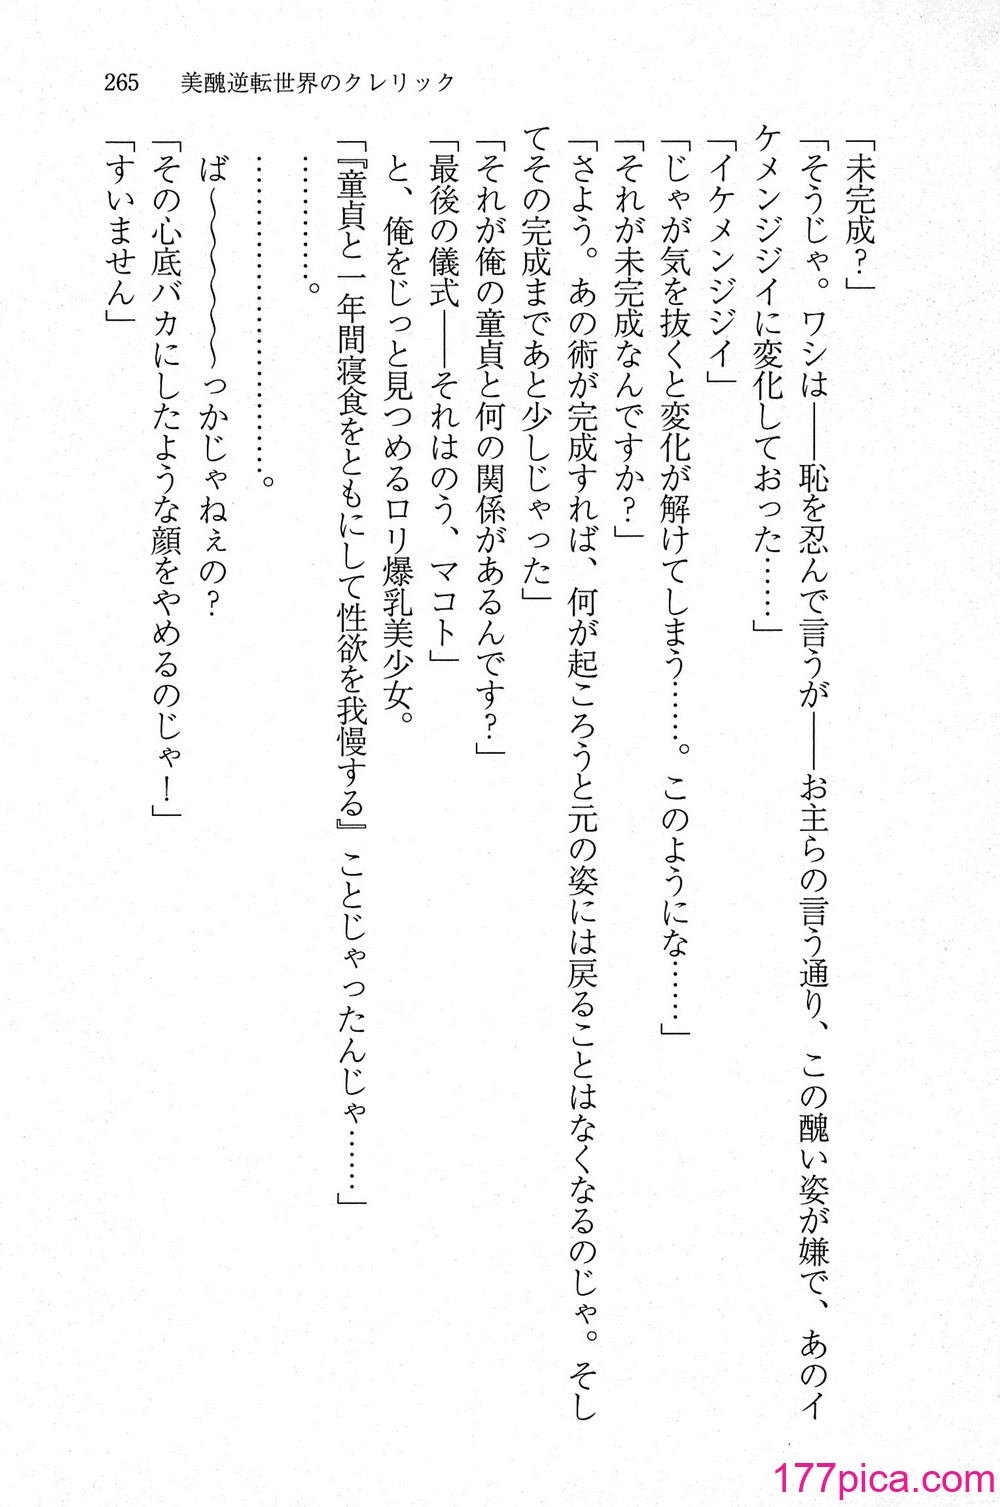 265　美醜逆転世界のクレリック
「未完成？」
「そうじゃ。ワシは――恥を忍んで言うが――お主らの言う通り、この醜い姿が嫌で、あのイ
ケメンジジイに変化しておった……」
「イケメンジジイ」
「じゃが気を抜くと変化が解けてしまう……。このようにな……」
「それが未完成なんですか？」
「さよう。あの術が完成すれば、何が起ころうと元の姿には戻ることはなくなるのじゃ。そし
てその完成まであと少しじゃった」
「それが俺の童貞と何の関係があるんです？」
「最後の儀式――それはのう、マコト」
　と、俺をじっと見つめるロリ爆乳美少女。
「『童貞と一年間寝食をともにして性欲を我慢する』ことじゃったんじゃ……」
　………。
　……………………。
　ば～～～～～っかじゃねぇの？
「その心底バカにしたような顔をやめるのじゃ！」
「すいません」
177pica.com